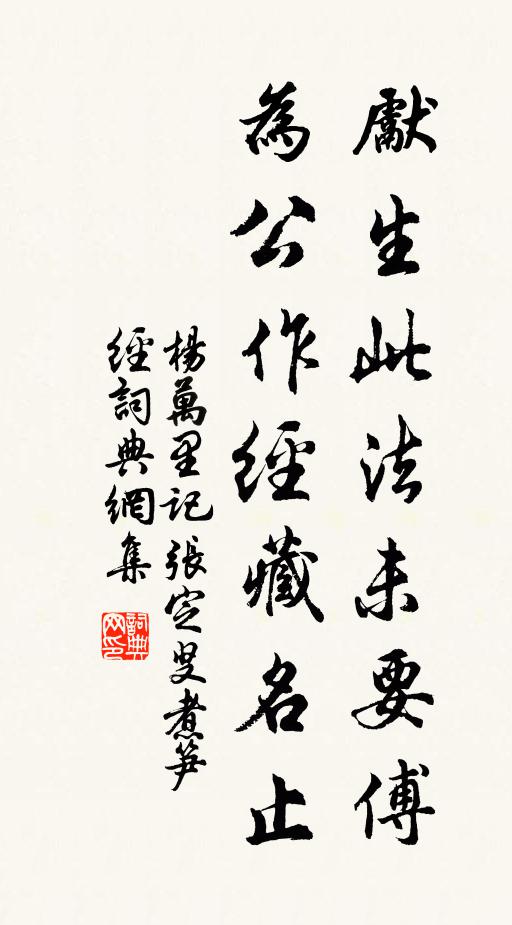 獻生此法未要傅
為公作經藏名止
楊萬里記張定叟煮笋
經詞典網集
詞典
网印